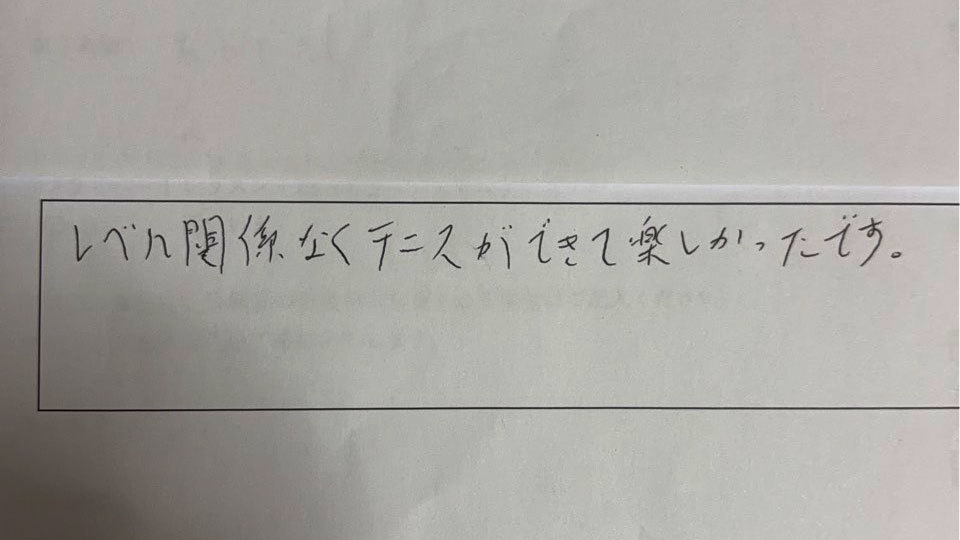 レベル関係なくテニスができて楽しかったです。